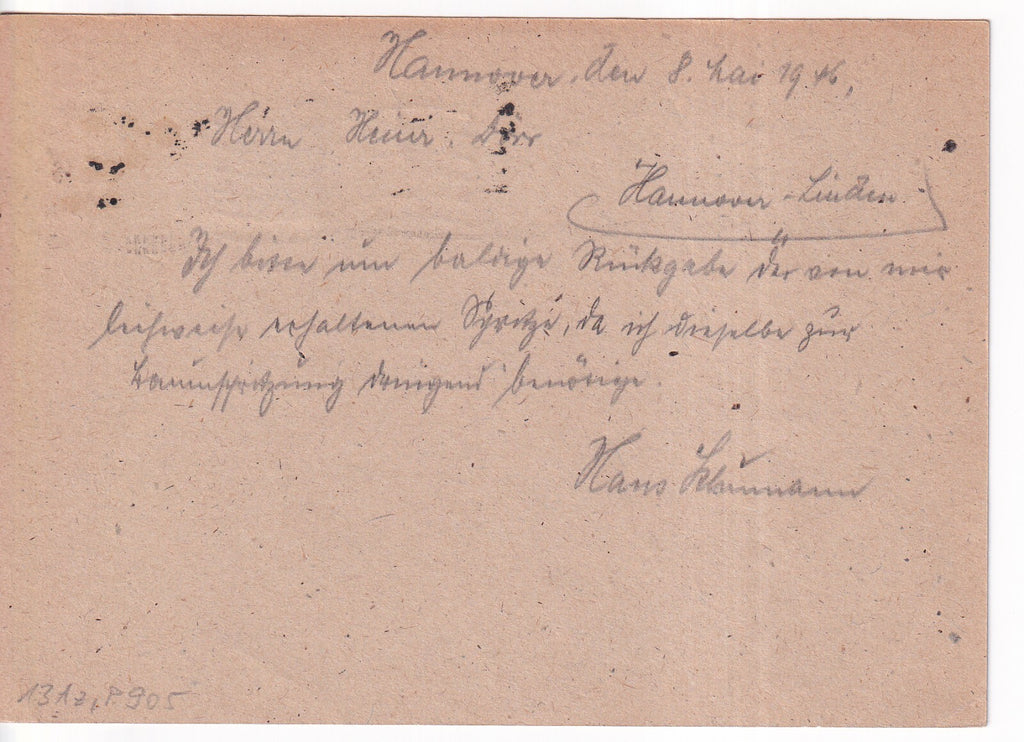 Hannover, den 8. Mai 1946,
Herrn Heinr. Dörr
Hannover-Linden
Ich bitte um baldige Rückgabe der von mir
leihweise erhaltenen Spritze, da ich dieselbe zur
Baumspritzung dringend benötige.
Hans
131z, P 905